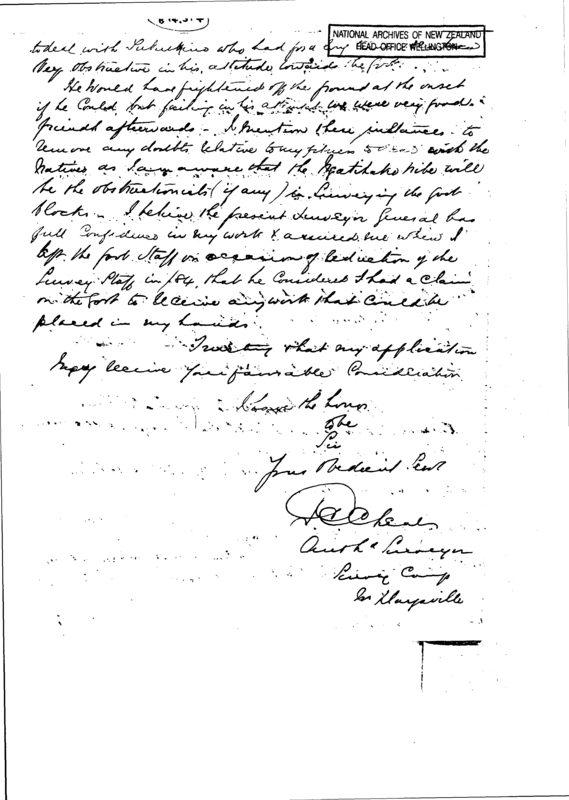 814.37+
NATIONAL ARCHIVES OF NEW ZEALAND
HEAD OFFICE WELLINGTON
to deal with who had for a
very obstructive in his attitude towards the Govt.
He would have frightened off the ground at the onset
if he could but failing in his attempt we were very good
friends afterwards - I mention these instances to
remove any doubts relative to my fitness to with the
Natives as I am aware that the Ngatihako tribe will
be the obstructionists (if any) in Surveying the Govt
blocks - I believe the present Surveyor General has
full Confidence in my work & assured me when I
left the Govt. Staff on occasion of reduction of the
Survey Staff in /84, that he Considered I had a Claim
on the Govt to receive any work that Could be
placed in my hands.
Trusting that my application
may receive your favourable Consideration
I have the honor
to be
Sir
Your Obedient Servt
Cheal
Authd Surveyor
Survey Camp
Nr Paysville